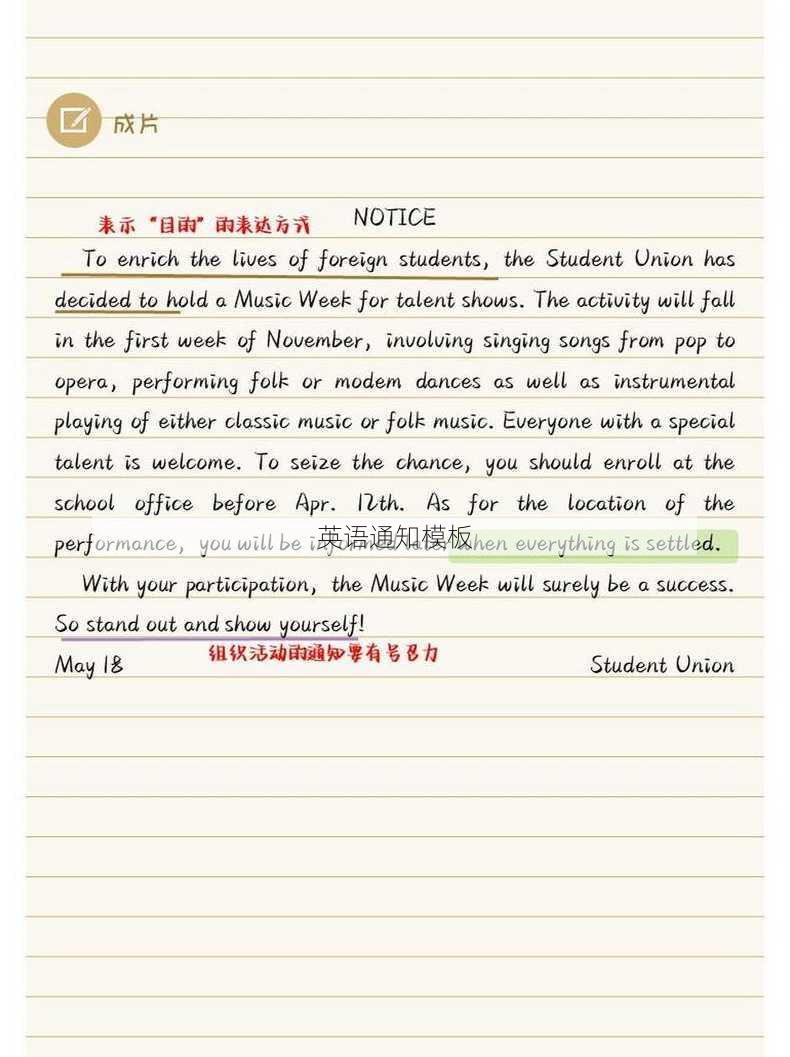 成片
表示“目的”的表达方式
NOTICE
To enrich the lives of foreign students, the Student Union has
decided to hold a Music Week for talent shows. The activity will fall
in the first week of November, involving singing songs from pop to
opera, performing folk or modem dances as well as instrumental
playing of either classic music or folk music. Everyone with a special
talent is welcome. To seize the chance, you should enroll at the
school office before Apr. 12th. As for the location of the
performance, you will be informed later when everything is settled.
英语通知模板
With your participation, the Music Week will surely be a success.
So stand out and show yourself!
组织活动的通知要有号召力
May 18
Student Union